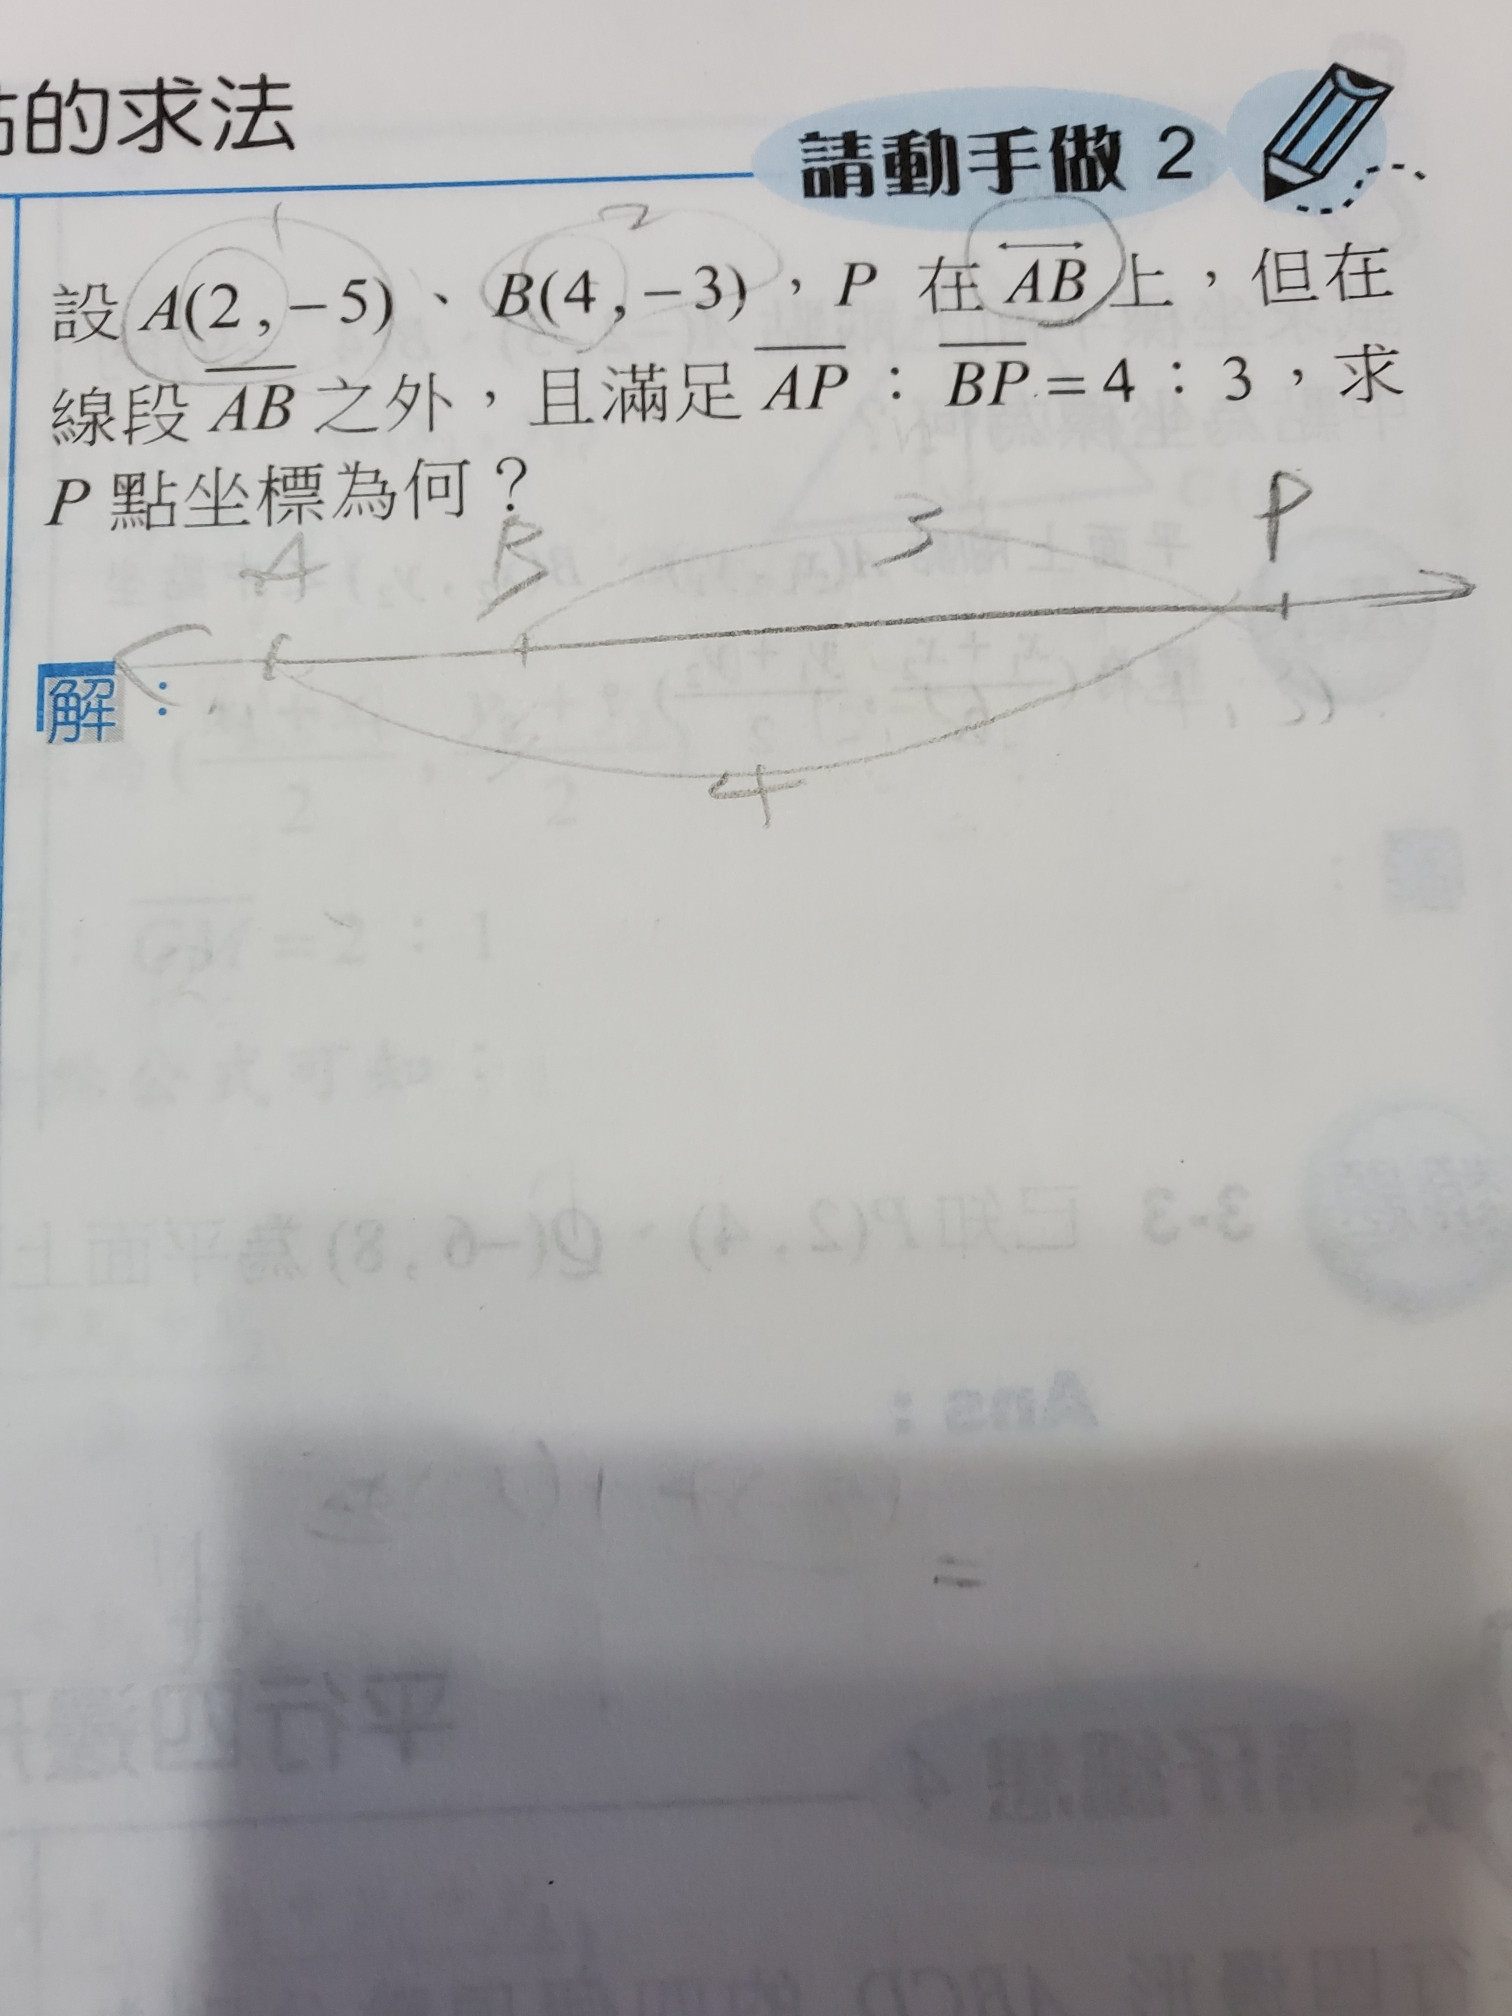 的求法
請動手做 2
1 2
設 A(2,−5)、B(4,−3),P 在 AB 上,但在
線段 AB 之外,且滿足 AP:BP=4:3,求
P 點坐標為何?
A B 3 P
解:
4